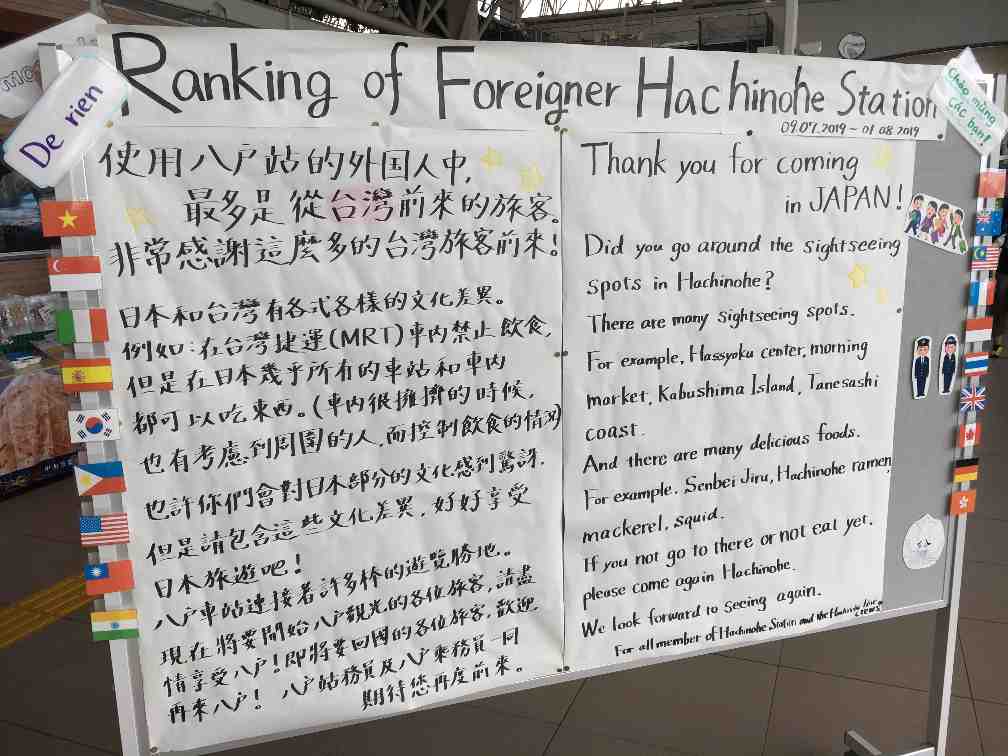 De rien
Ranking of Foreigner Hachinohe Station
Chào mừng
các bạn!
09.07.2019 - 01.08.2019
使用八戸站的外国人中,
最多是從台灣前來的旅客。
非常感謝這麼多的台灣旅客前來!
日本和台灣有各式各樣的文化差異。
例如:在台灣捷運(MRT)車內禁止飲食,
但是在日本幾乎所有的車站和車內
都可以吃東西。(車內很擁擠的時候,
也有考慮到周圍的人,而控制飲食的情況)
也許你們會對日本部分的文化感到驚訝,
但是請包含這些文化差異,好好享受
日本旅遊吧!
八戸車站連接着許多棒的遊覽勝地。
現在將要開始八戸觀光的各位旅客,請盡
情享受八戸!即將要回國的各位旅客,歡迎
再來八戸! 八戸站務員及八戸乘務員一同
期待您再度前來。
Thank you for coming
in JAPAN!
Did you go around the sightseeing
spots in Hachinohe?
There are many sightseeing spots.
For example, Hassyoku center, morning
market, Kabushima Island, Tanesashi
coast.
And there are many delicious foods.
For example. Senbei Jiru, Hachinohe ramen,
mackerel, squid.
If you not go to there or not eat yet,
please come again Hachinohe.
We look forward to seeing again.
For all member of Hachinohe Station and the Hachinohe line
crews